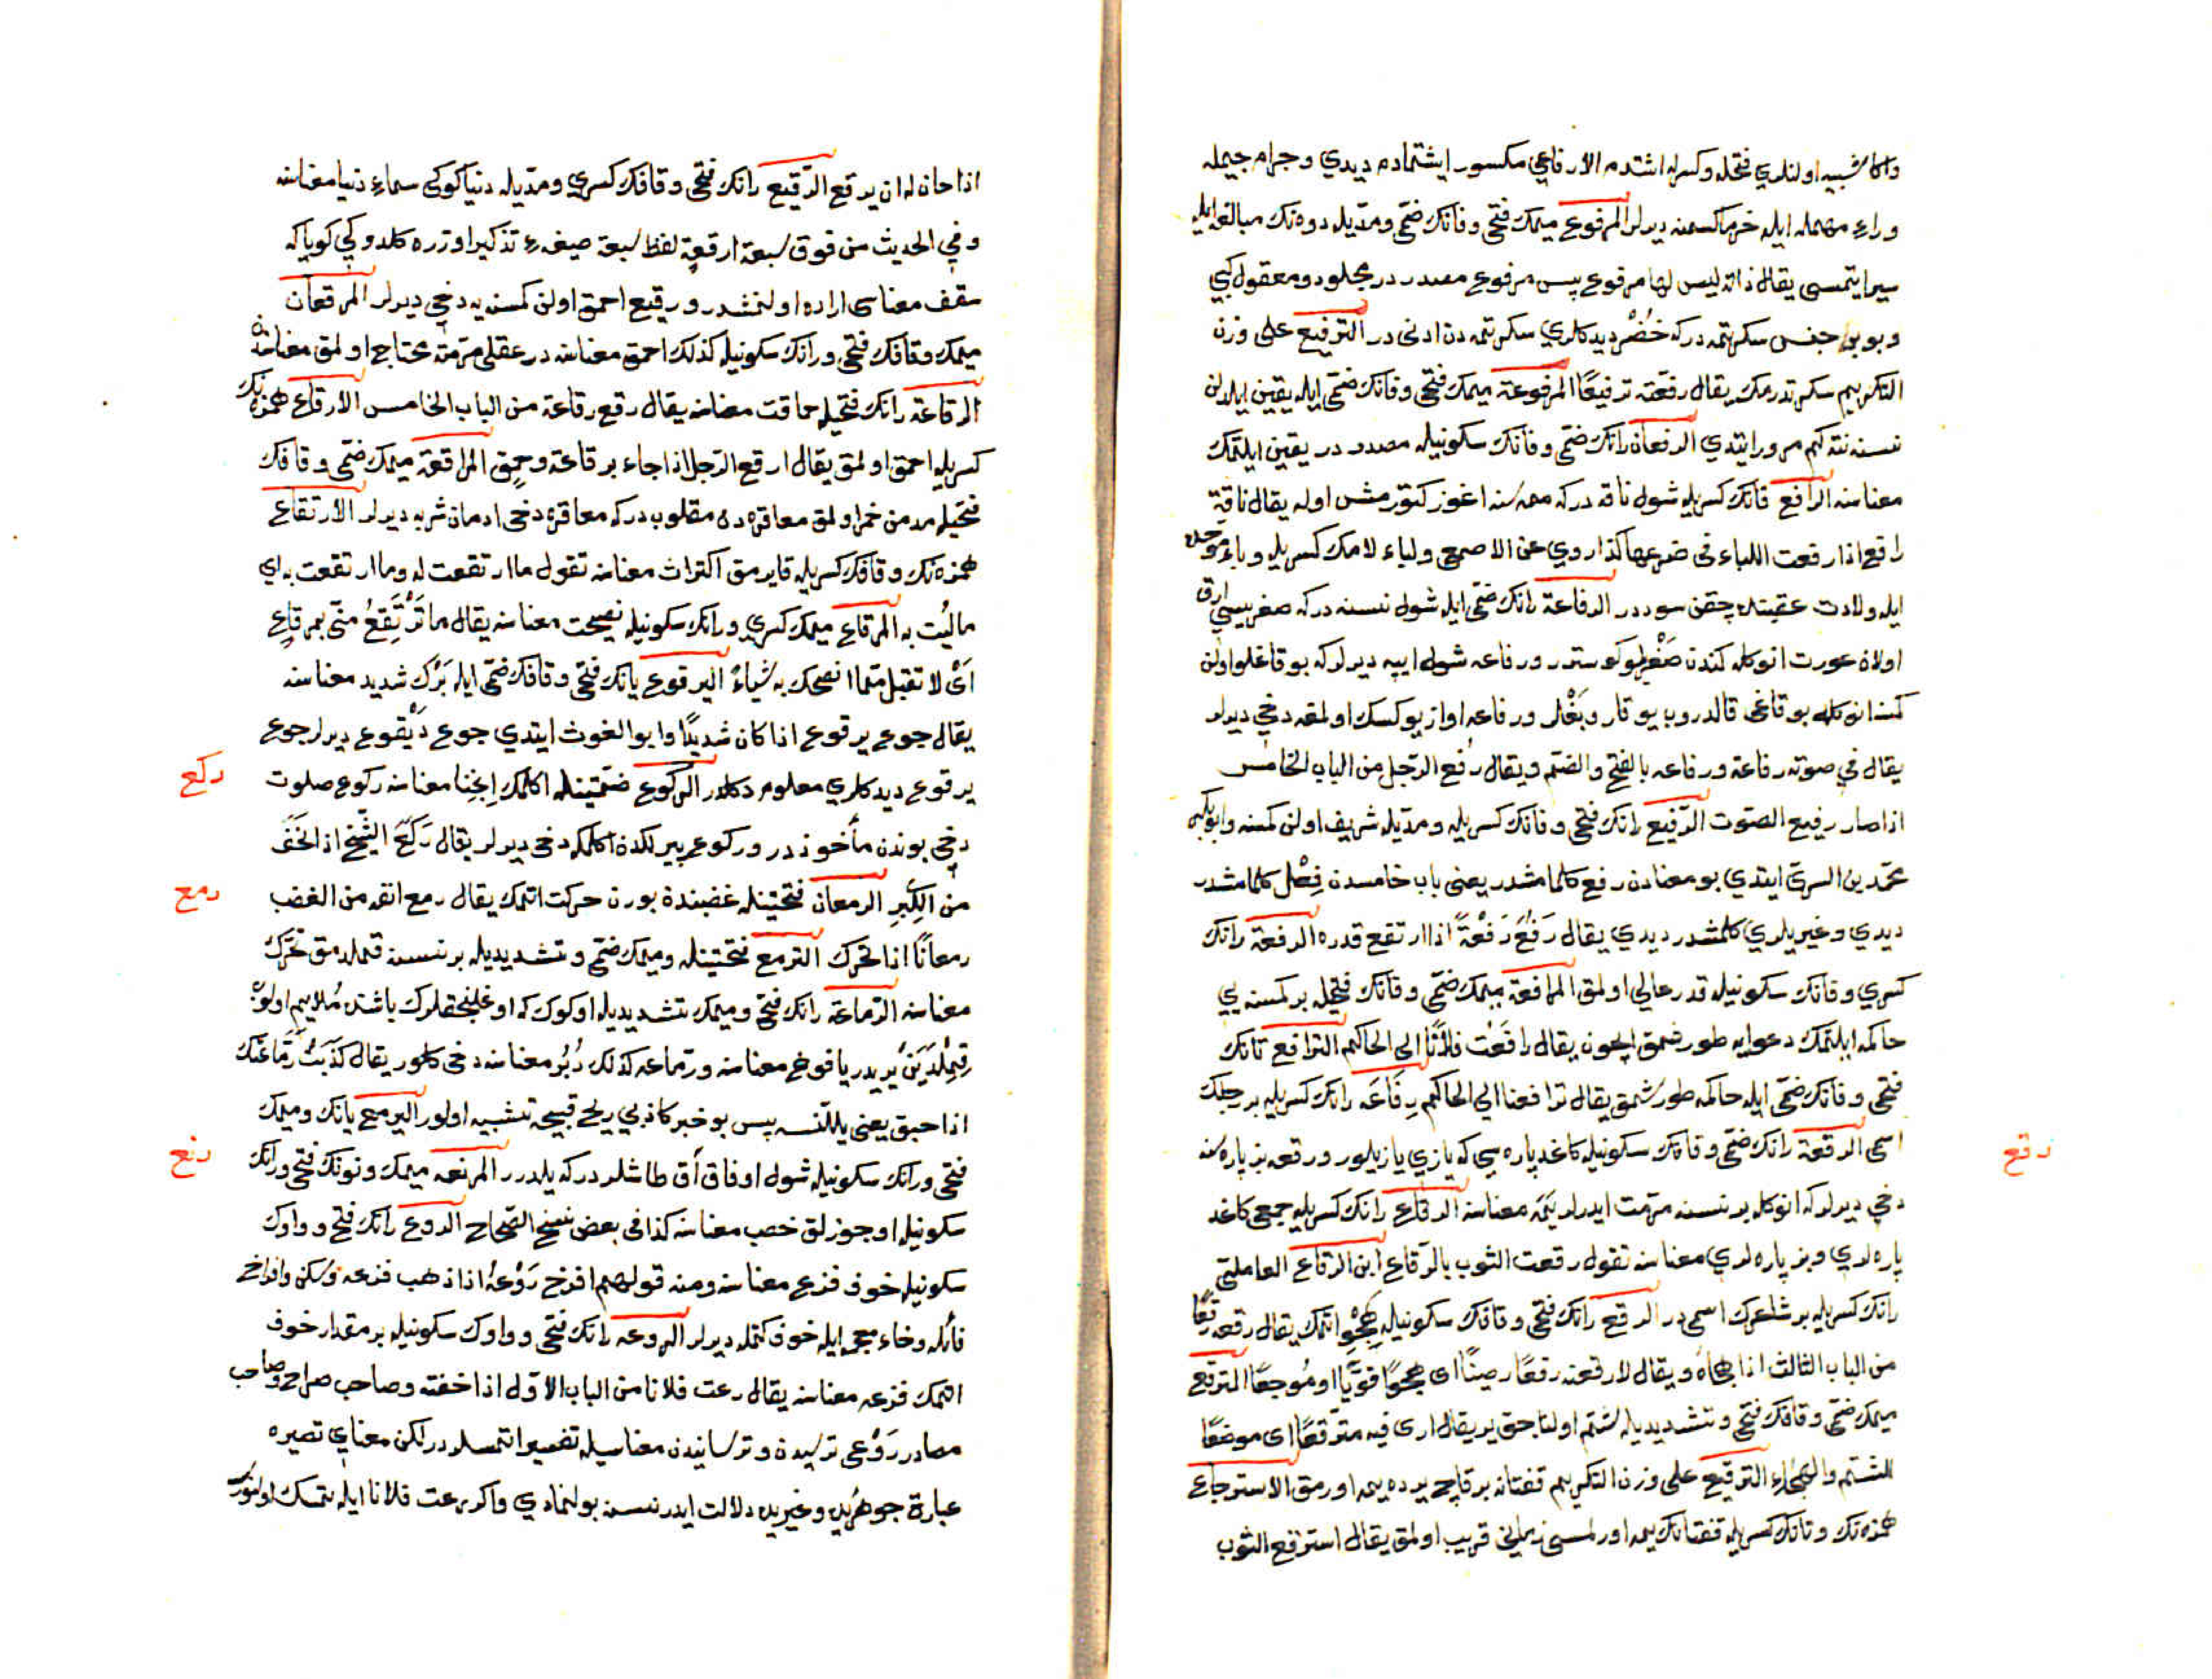 واكا شبيه اولنلري فتحله وكسرله اشتدم الا رفاعي مكسور ايشتمادم ديدي وجرام جيمله
وراء مهمله ايله خرما كسمنه ديرلر المرفوع ميمك فتحي وفانك ضمي ومديله دوه نك مبالغه ايله
سير ايتمسي يقال ذاته ليس لها مرفوع پس مرفوع مصدر در مجلود ومعقول كبي
وبو بر جنس سكرتمه دركه حُضْر ديدكلري سكرتمه دن ادنى در الترفيع على وزن
التكريم سكرتدرمك يقال رفعته ترفيعًا المرفوعة ميمك فتحي وفانك ضمي ايله يقين ايلدلن
نسنه نته كم مرور ايتدي الرفعان رانك ضمي وفانك سكونيله مصدر در يقين ايلتمك
معناسنه الرافع فانك كسريله شول ناقه دركه ممه سنه اغوز كتورمش اوله يقال ناقة
رافع اذا رفعت اللباء في ضرعها كذا روي عن الاصمعي ولباء لامك كسريله وباء موحده
ايله ولادت عقبنده چقن سوددر الرفاعة رانك ضمي ايله شول نسنه دركه صغريسي ارق
اولان عورت انوكله كندن صَغْرلو كوستررو رفاعه شول ايپه ديرلركه بوقاغلو اولن
كمسنه انوكله بوقاغى قالدروب يوقارو بَغْلر ورفاعه اواز يوكسك اولمغه دخي ديرلر
يقال في صوته رفاعة ورفاعه بالفتح والضم ويقال رُفع الرجل من الباب الخامس
اذا صار رفيع الصوت الرفيع رانك فتحي وفانك كسريله ومديله شريف اولن كمسنه وابوبكر
محمد بن السري ايتدي بو معنادن رفع كلمامشدر يعني باب خامسدن فِعْل كلمامشدر
ديدي وغيريلري كلمشدر ديدي يقال رَفُعَ رَفْعةً اذا ارتفع قدره الرفعة رانك
كسري وفانك سكونيله قدر عالي اولمق المرافعة ميمك ضمي وفانك فتحيله بر كمسنه يي
حاكمه ايلتمك دعوايه طورضمق ايچون يقال رافعت فلانًا الى الحاكم الترافع تانك
فتحي وفانك ضمي ايله حاكمه طورشمق يقال ترافعنا الي الحاكم رِفَاعَه رانك كسريله بر رجلك
اسمي الرقعة رانك ضمي وقافك سكونيله كاغد پاره سي كه يازي يازيلور ورقعه بز پاره سنه
دخي ديرلركه انوكله بر نسنه مرمت ايدرلر يَمَه معناسنه الرقاع رانك كسريله جمعي كاغد
پاره لري وبز پاره لري معناسنه تقول رقعت الثوب بالرقاع ابن الرقاع العاملي
رانك كسريله بر شاعرك اسمي در الرقع رانك فتحي وقافك سكونيله هَجْو اتمك يقال رقعه رقعًا
من الباب الثالث اذا هجاه ويقال لارقعنه رقعًا رصينًا اى هجوًا قويًا او مُوجعًا المترقع
ميمك ضمي وقافك فتحي وتشديديله شتم اولناجق ير يقال ارى فيه مترقعًا اى موضعًا
للشتم والهجاء الترقيع على وزن التكريم قفتانه بر قاچ يرده يمه اورمق الاسترجاع
همزه نك وتانك كسريله قفتانك يمه اورلمسي زماني قريب اولمق يقال استرقع الثوب
رقع
اذا حان له ان يرقع الرقيع رانك فتحي وقافك كسري ومديله دنيا كوكى سماء دنيا معناسنه
وفي الحديث من فوق سبعة ارقعة لفظ سبعة صيغه تذكير اوزره كلدوكي كوياكه
سقف معناسى اراده اولنمشدر ورقيع احمق اولن كمسنه يه دخي ديرلر المرقعان
ميمك وقافك فتحي ورانك سكونيله كذلك احمق معناسنه در عقلي مرمته محتاج اولمق معناسنه
الرقاعة رانك فتحيله حماقت معناسنه يقال رقع رقاعة من الباب الخامس الارقاع همزه نك
كسريله احمق اولمق يقال ارقع الرجل اذا جاء برقاعة وحمق المراقعة ميمك ضمي وقافك
فتحيله مدمن خمر اولمق معاقره دن مقلوبدر كه معاقره دخي ادمان شربه ديرلر الارتقاع
همزه نك وقافك كسريله قايرمق اكتراث معناسنه تقول ما ارتقعت له وما ارتقعت به اي
ما باليت به المرقاع ميمك كسري ورانك سكونيله نصيحت معناسنه يقال ما تَرْتَقِعُ منّي بمرقاع
اَىْ لا تقبل مما انصحك به شياءً اليرقوع يانك فتحي وقافك ضمي ايله بَرْك شديد معناسنه
يقال جوع يرقوع اذا كان شديدًا وابو الغوث ايتدي جوع دَيْقوع ديرلر جوع
يرقوع ديدكلري معلوم دكلدر الركوع ضمتينله اكلمك اِنْحِنا معناسنه ركوع صلوت
دخي بوندن مأخوذدر وركوع پيرلكدن اكلمكه دخي ديرلر يقال رَكَعَ الشيخ اذا انحنى
من الكِبَرِ الرمعان فتحتينله غضبدن بورن حركت اتمك يقال رمع انفه من الغضب
رمعانًا اذا تحرك الترمع فتحتينله وميمك ضمي وتشديديله بر نسنه قملدرمق تحرك
معناسنه الرماعة رانك فتحي وميمك تشديديله اوكوك كه اوغلنجقلرك باشنده مُلايم اولور
قِمِلْدَيَنْ يريدر يافوخ معناسنه ورماعه كذلك دُبُر معناسنه دخي كلور يقال كَذَبَتْ رَمَّاعَتك
اذا حبق يعني يللنسه پس بو خبر كاذبي ريح قبيحه تشبيه اولور اليرمع يانك وميمك
فتحي ورانك سكونيله شول اوفاق آق طاشلردركه يلدرر المرنعه ميمك ونونك فتحي ورانك
سكونيله اوجوزلق خصب معناسنه كذا في بعض نسخ الصحاح الروع رانك فتحي وواوك
سكونيله خوف فزع معناسنه ومنه قولهم افرخ رَوْعُهُ اذا ذهب فزعه وسكن وافراخ
فائله وخاء معجمه ايله خوف كتمكه ديرلر الروعه رانك فتحي وواوك سكونيله بر مقدار خوف
اتمك فزعه معناسنه يقال رعت فلانا من الباب الاول اذا خفته وصاحب صراح وصاحب
مصادر رَوْعى ترسيدن وترسانيدن معناسيله تفسير اتمسلر در لكن معناي تصيره
عبارة جوهريده وغيريده دلالت ايدر نسنه بولنمادي واكر رعت فلانا ايله تمسك اولنورسه
ركع
رمع
رنع